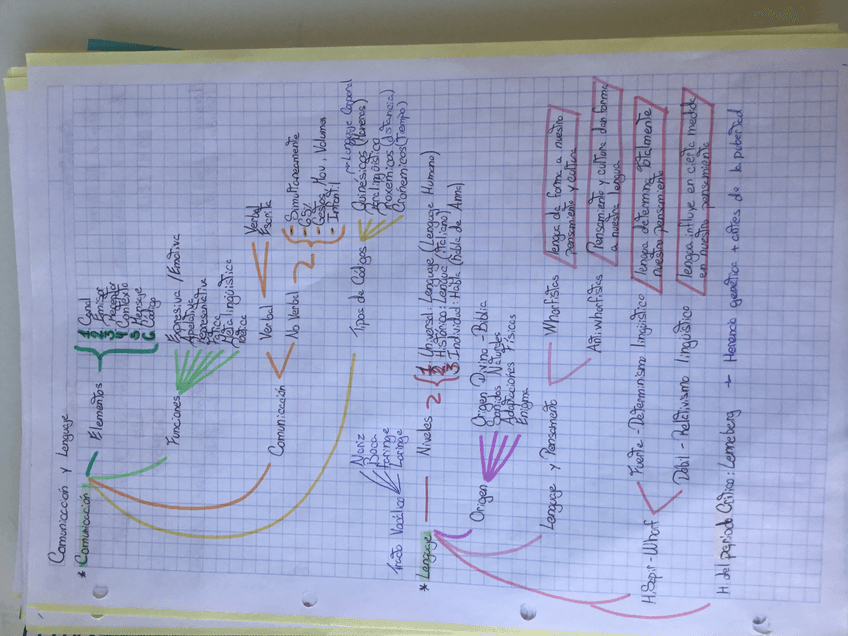 Comunicación y Lenguaje
* Comunicación
Elementos
1 Canal
2 Emisor
3 Receptor
4 Contexto
5 Mensaje
6 Código
Funciones
Expresiva / Emotiva
Apelativa
Representativa
Fática
Metalingüística
Poética
Comunicación
Verbal
Verbal
Escrita
No Verbal
- Simultaneamente
- Gestos, Mov, Volumen
- Infantil
Tipos de Códigos
→ Lenguaje Corporal
Quinésicos (Maneras)
Paralingüístico
Proxémicos (distancia)
Cronémicos (Tiempo)
Tracto Vocálico
Nariz
Boca
Faringe
Laringe
* Lenguaje
Niveles
1. Universal: Lenguaje (Lenguaje Humano)
2. Histórico: Lengua (Italiano)
3. Individual: Habla (Habla de Anna)
Origen
Origen Divino - Biblia
Sonidos Naturales
Adaptaciones Físicas
Enigma
Lenguaje y Pensamiento
Whorfistas
lengua da forma a nuestro
pensamiento y cultura
Anti whorfistas
Pensamiento y cultura dan forma
a nuestra lengua
H. Sapir - Whorf
Fuerte - Determinismo lingüístico
lengua determina totalmente
nuestro pensamiento
Debil - Relativismo lingüístico
lengua influye en cierta medida
en nuestro pensamiento
H. del periodo Crítico: Lenneberg → Herencia genética + antes de la pubertad